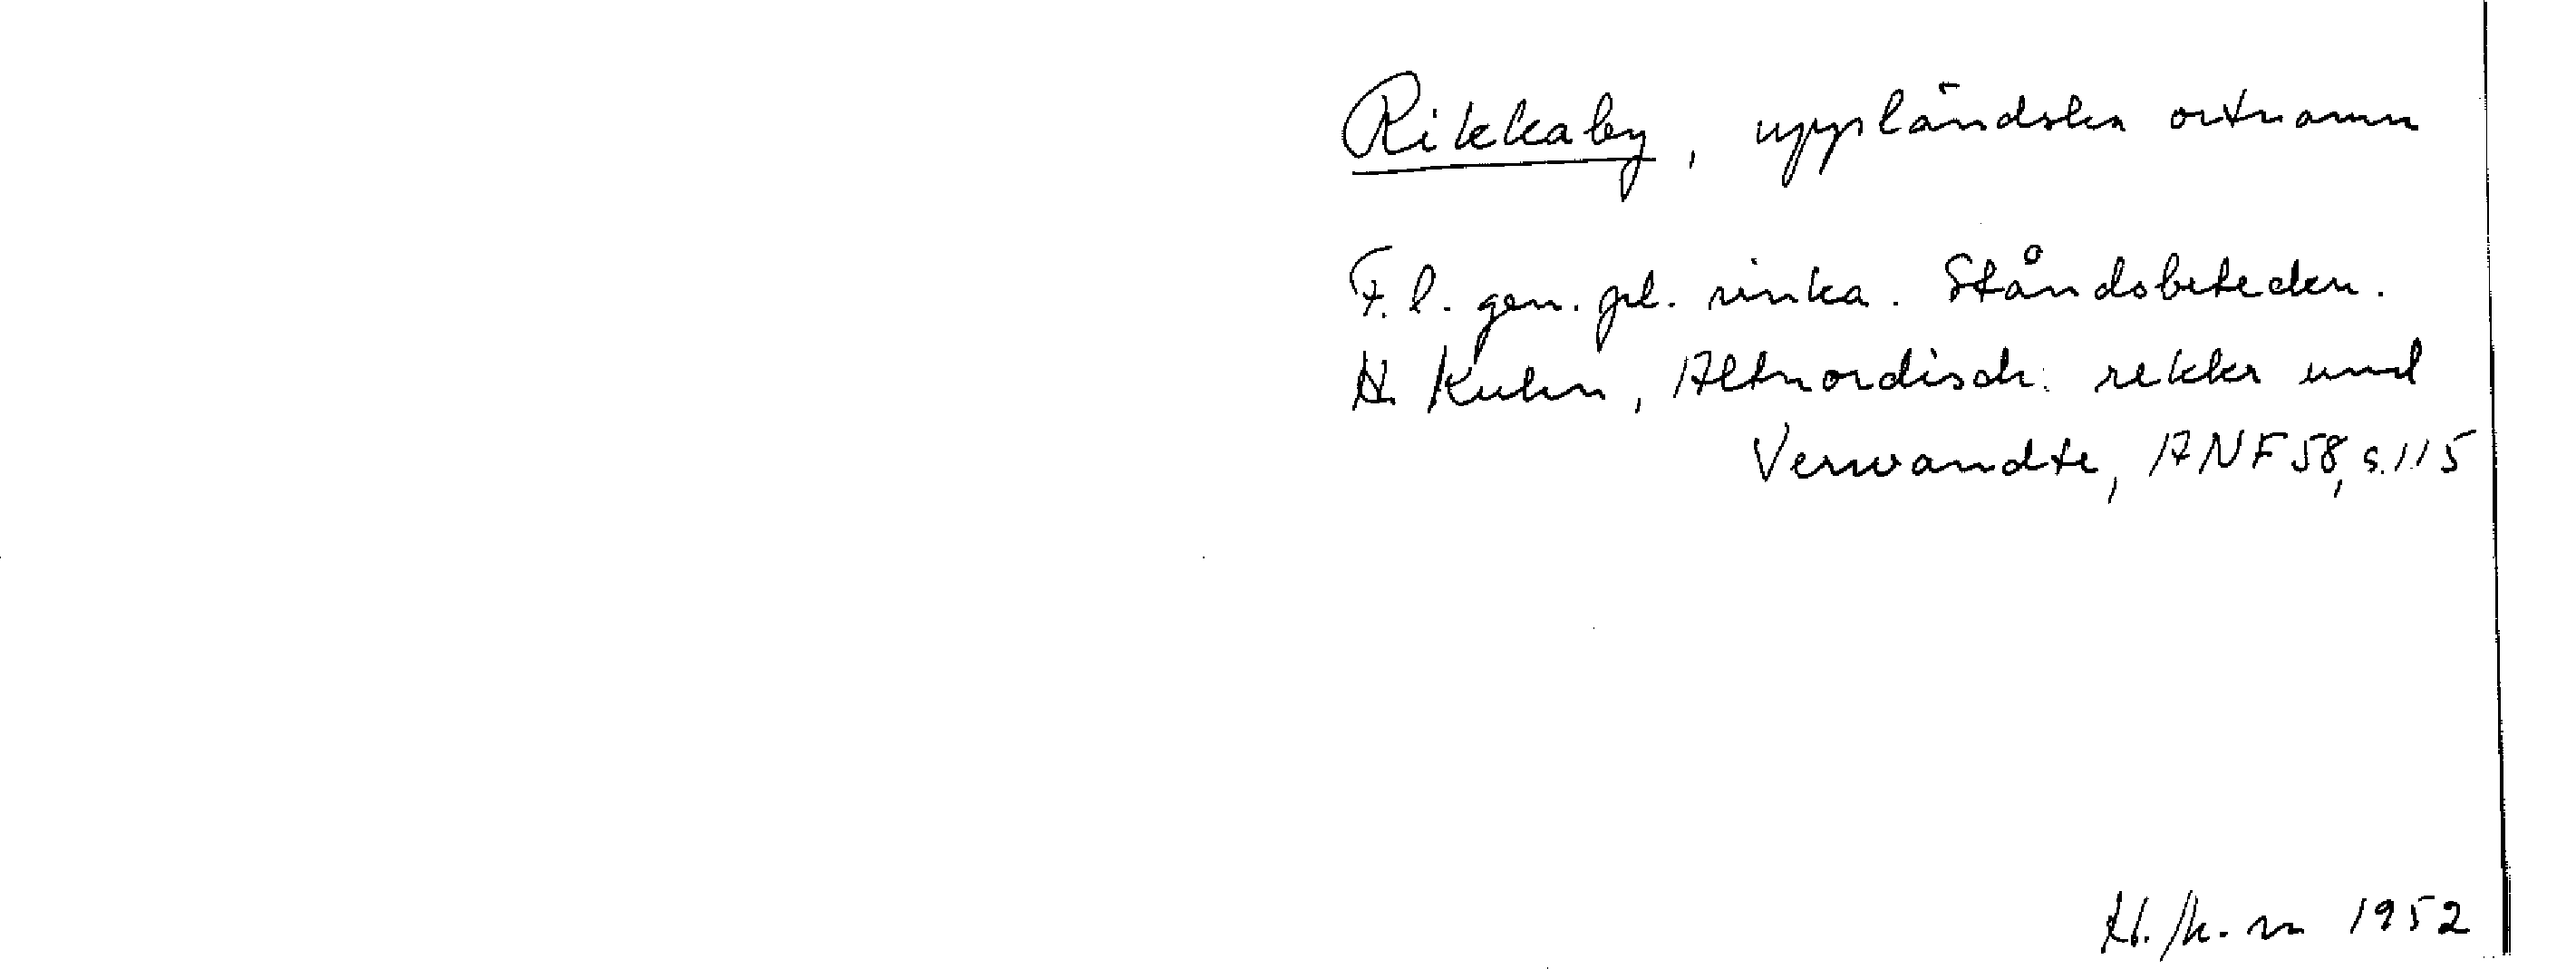 Rikkaby, uppländska ortnamn
F.l. gen. pl. rinka. Ståndsbeteckn.
H. Kuhn, Altnordisch rekkr und
Verwandte, ANF 58, s. 115
1952